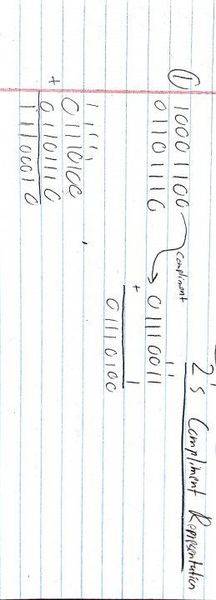 2's Compliment Representation
① 10001100 compliment 01110011
01101110
11
+ 1
01110100
11111
01110100
+ 01101110
11100010